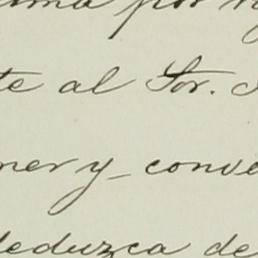 por
te al Sor.
ner y conve
deduzca de